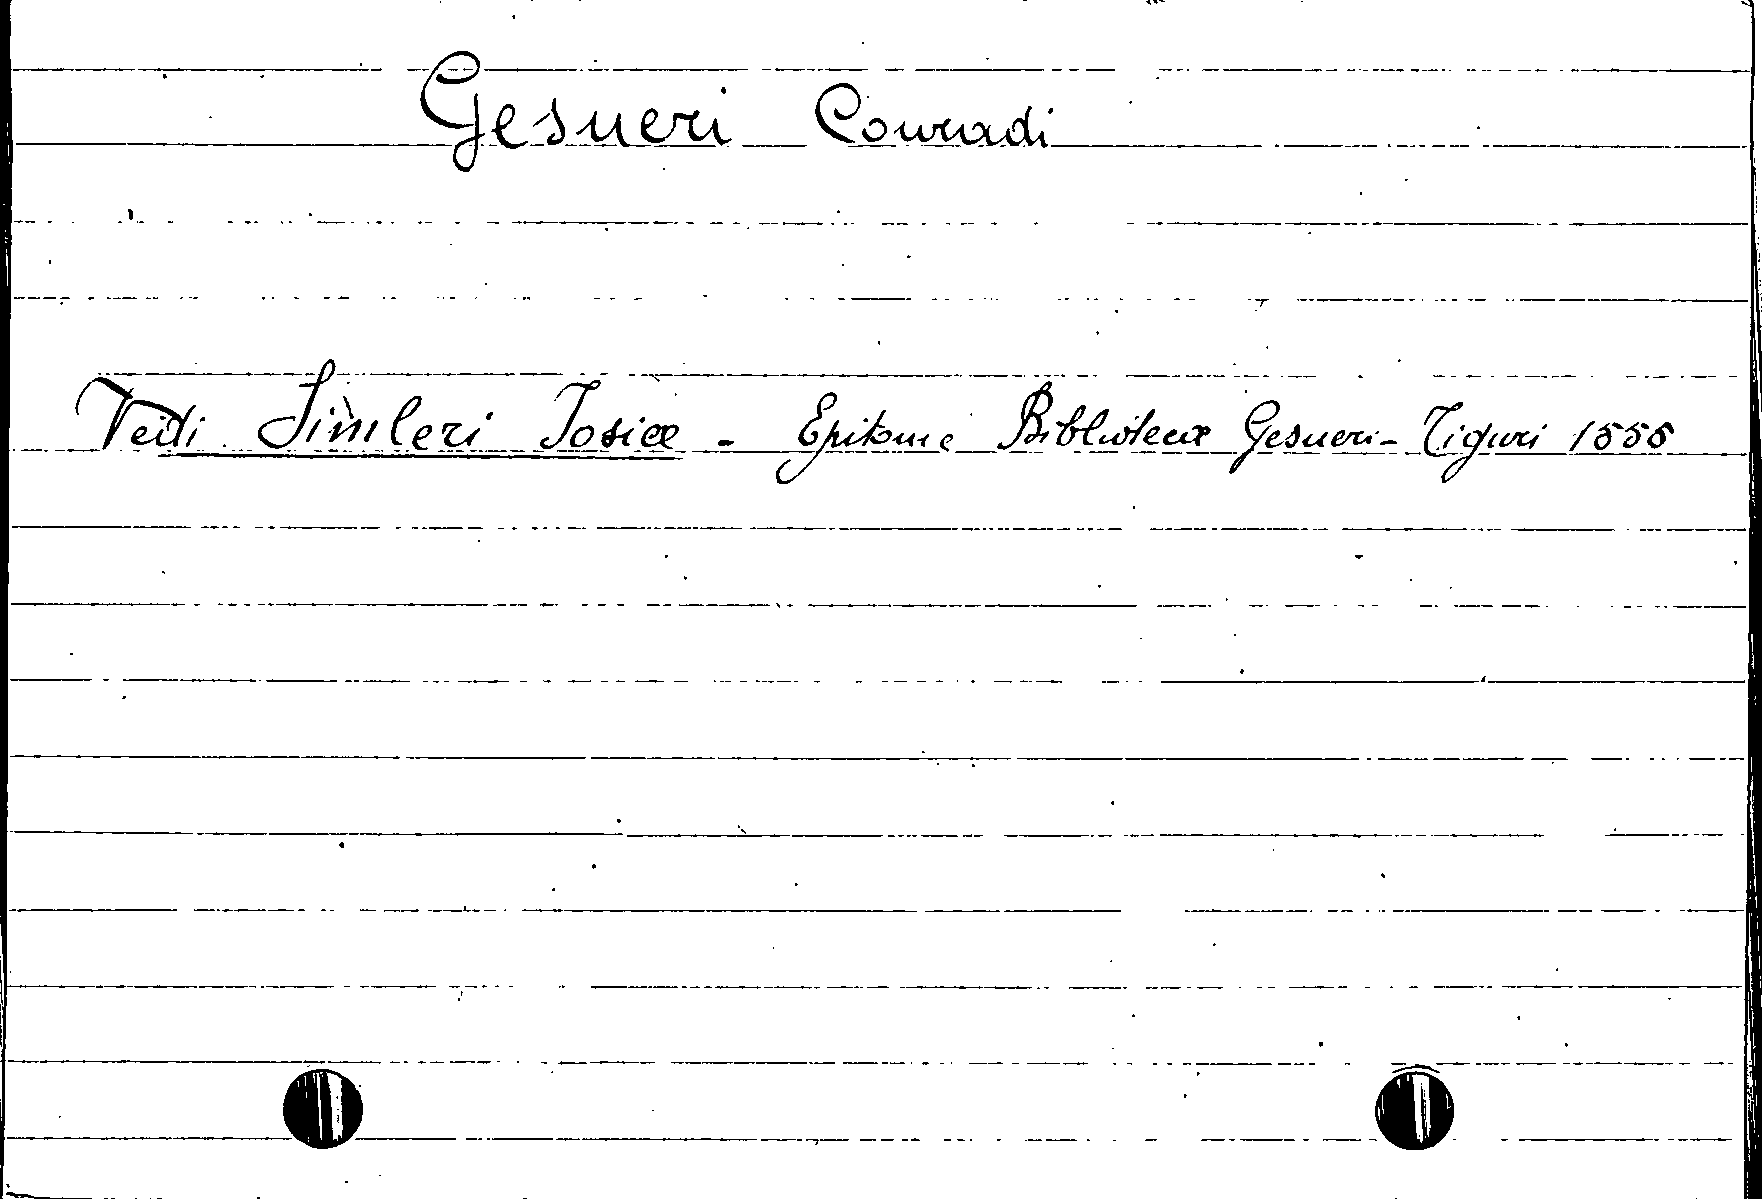 Gesneri Conradi
Vedi Simleri Josiae - Epitome Bibliotecæ Gesneri - Tiguri 1555